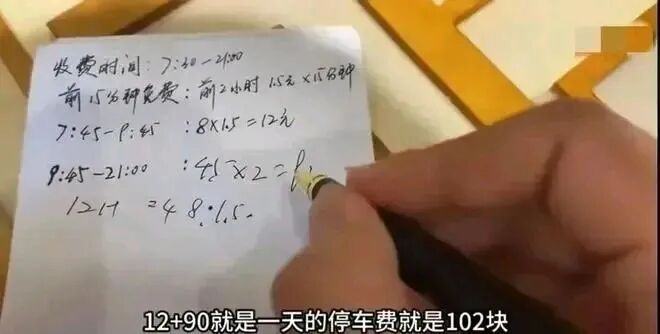 收费时间：7:30-21:00
前15分钟免费：前2小时 1.5元×15分钟
7:45-9:45 ：8×1.5=12元
9:45-21:00 ：45×2=9
12H =48:1.5.
12+90就是一天的停车费就是102块